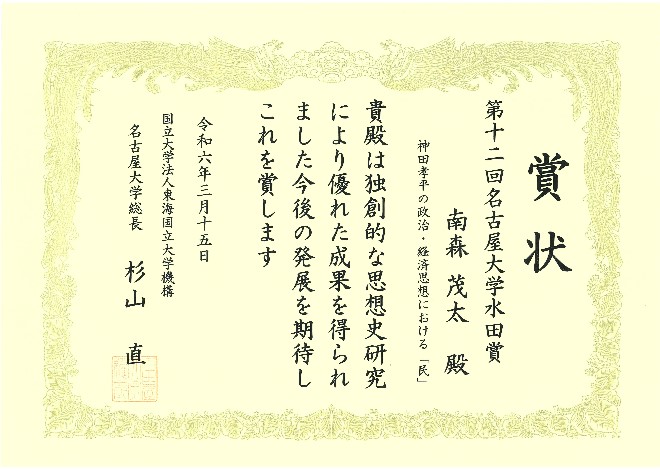 賞状
第十二回名古屋大学水田賞
南森 茂太 殿
神田孝平の政治・経済思想における「民」
貴殿は独創的な思想史研究
により優れた成果を得られ
ました今後の発展を期待し
これを賞します
令和六年三月十五日
国立大学法人東海国立大学機構
名古屋大学総長
杉山 直